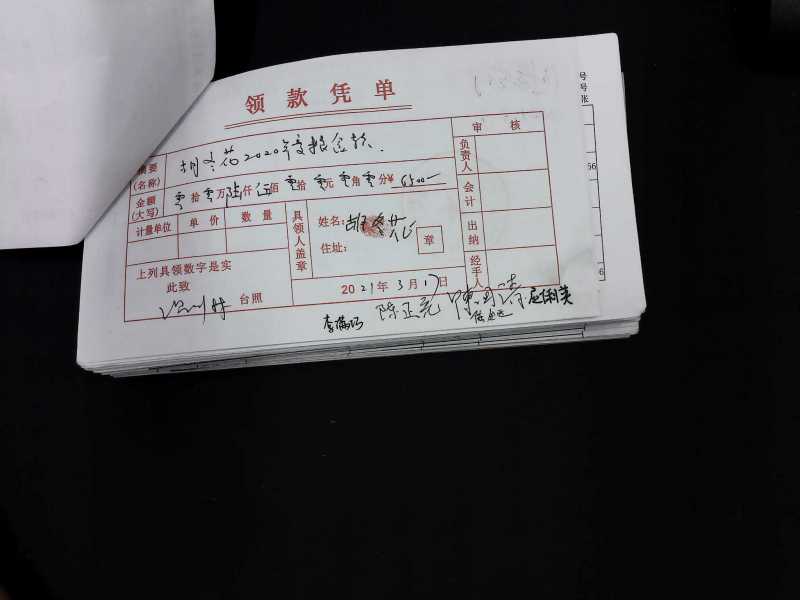 领款凭单
摘要(名称) 胡冬花2020年度租金款.
审核
金额(大写) 零拾零万陆仟伍佰零拾零元零角零分¥ 6500—
负责人
计量单位 单价 数量
具领人盖章
姓名: 胡冬花
住址:
章
会计
出纳
经手人
上列具领数字是实
此致
台照
2021年3月17日
陈正亮
号
号
张
66
6